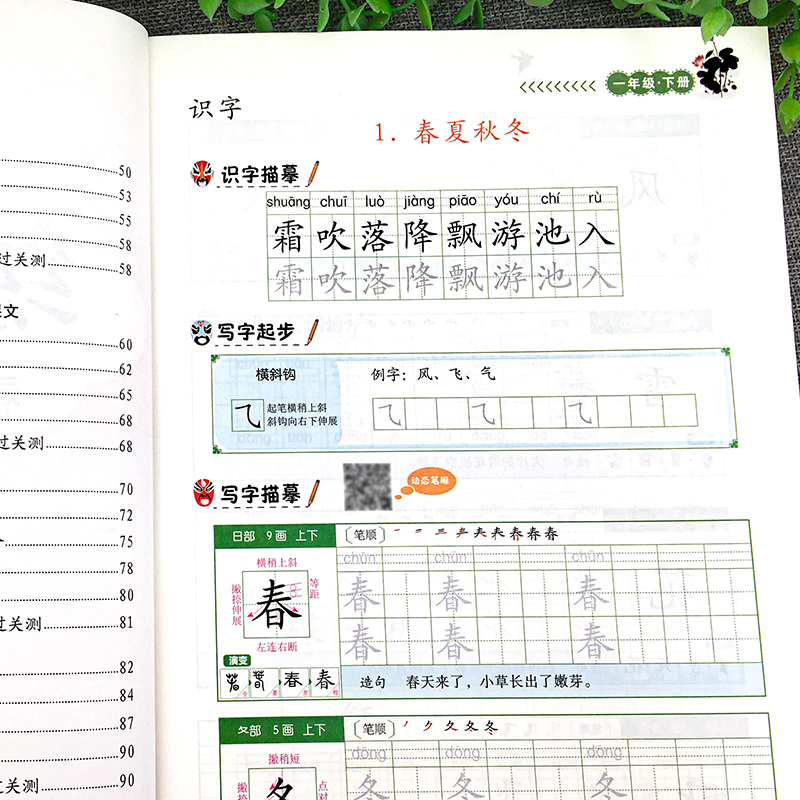 50
53
55
58
过关测 58
课文
60
62
65
68
过关测 68
70
72
75
78
80
过关测 81
82
84
87
90
过关测 90
一年级·下册
识字
1. 春夏秋冬
识字描摹
shuāng chuī luò jiàng piāo yóu chí rù
霜 吹 落 降 飘 游 池 入
霜 吹 落 降 飘 游 池 入
写字起步
横斜钩
例字：风、飞、气
起笔横稍上斜
斜钩向右下伸展
写字描摹
动态笔顺
日部 9画 上下
〔笔顺〕
chūn chūn chūn
横稍上斜
撇捺伸展
等距
春
左连右断
春 春 春
春 春 春
演变
春 春
造句 春天来了，小草长出了嫩芽。
夂部 5画 上下
〔笔顺〕
dōng dōng dōng
撇稍短
冬
冬 冬 冬